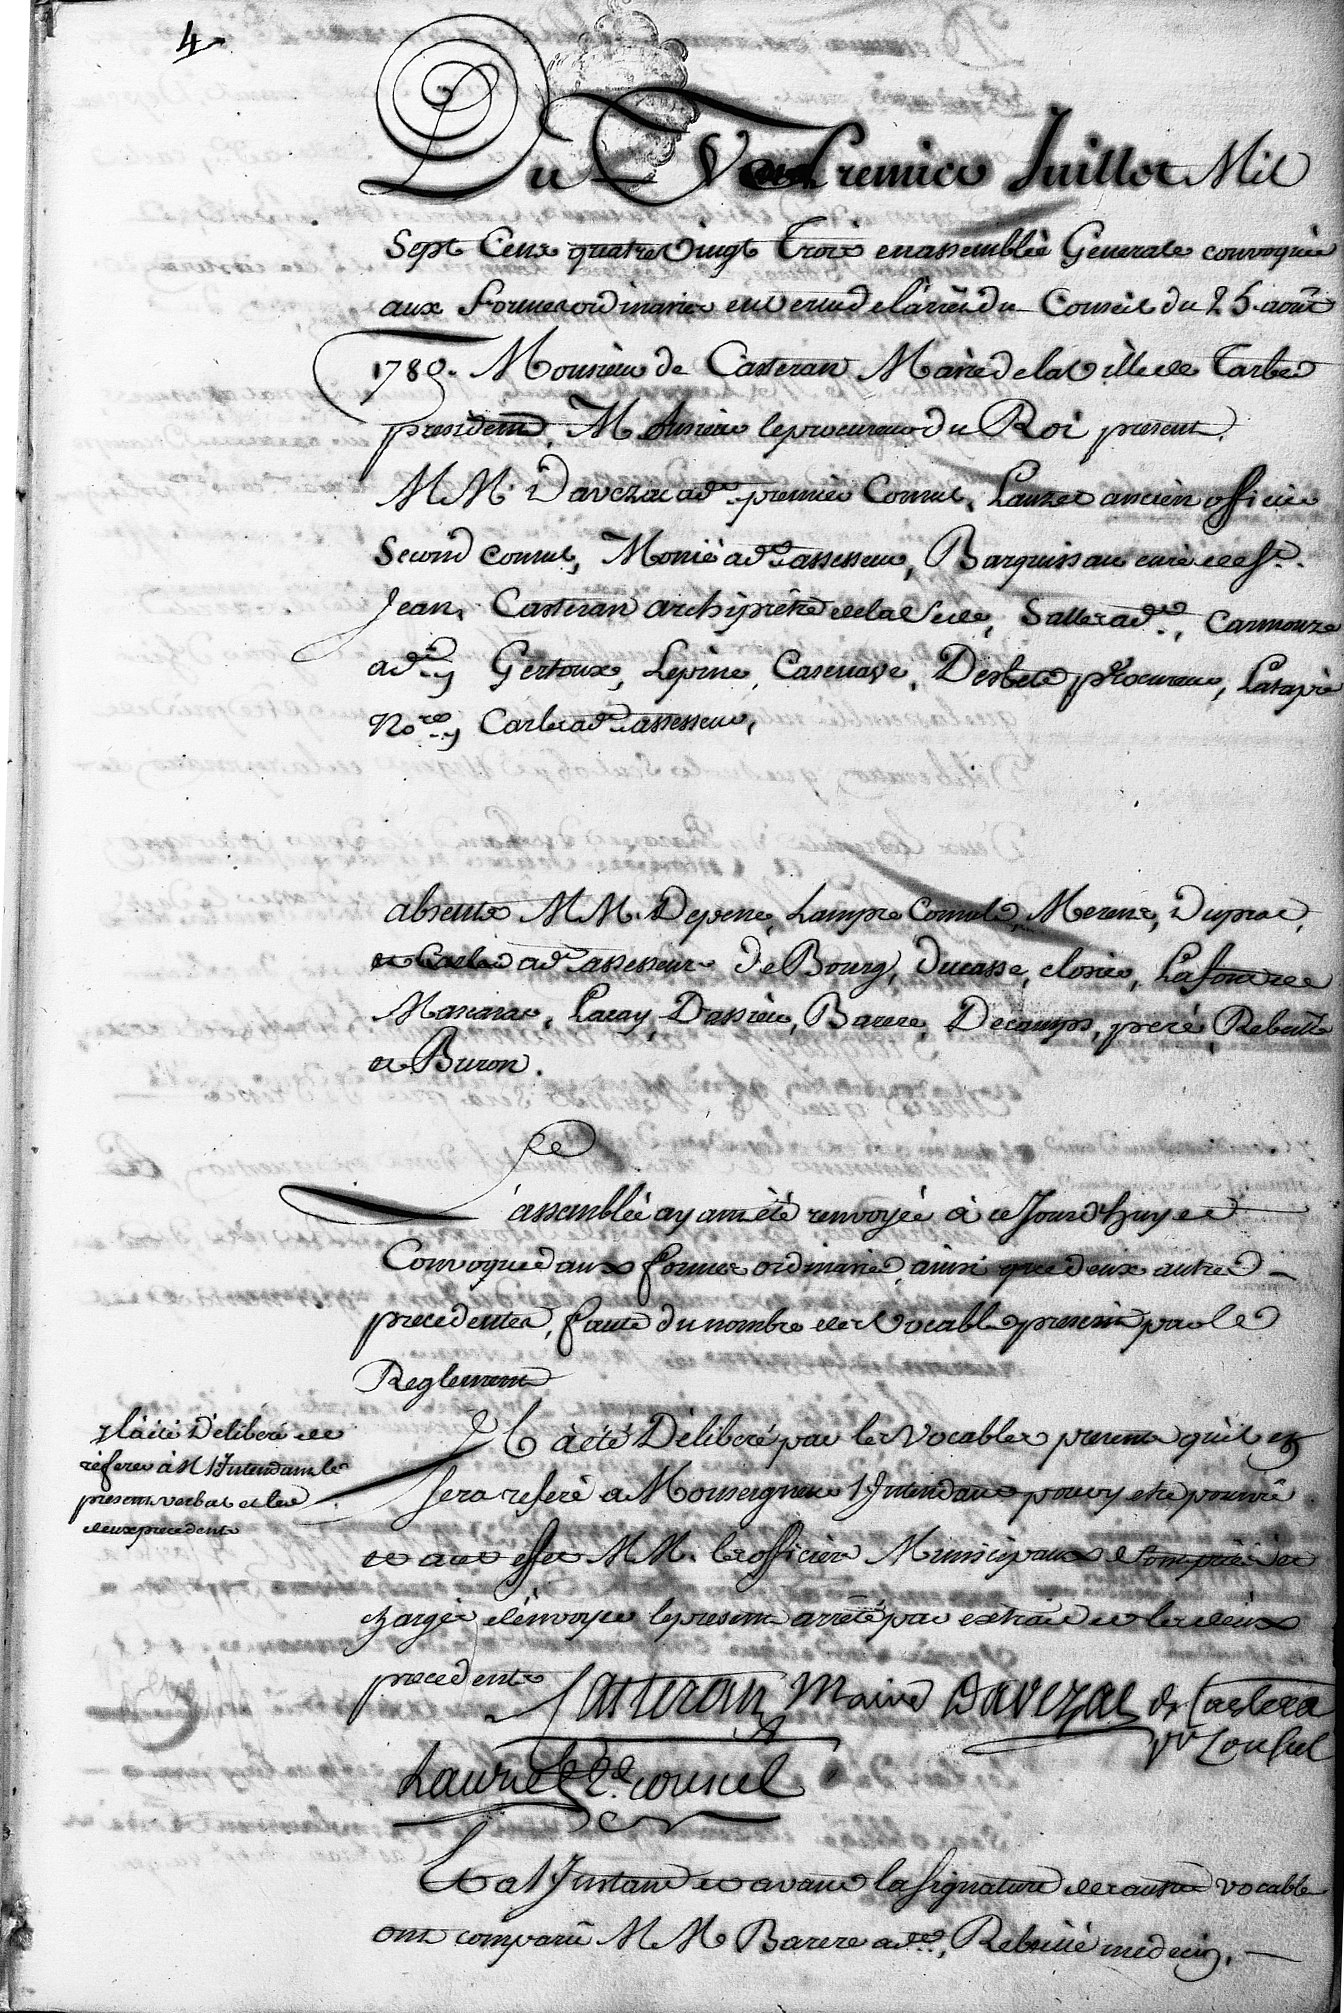 4
Du Premier Juillet Mil
Sept Cens quatre Vingt Trois en assemblée Generale convoquée
aux Formes ordinaires en vertu de l'arrêt du Conseil du 25. août
1780. Monsieur de Casteran Maire de la Ville de Tarbes
president, M. Ansieu le procureur du Roi present.
M M. Davezac ad.t premier Consul, Lauzet ancien officier
Second consul, Monié ad.t assesseur, Barquissau curé de St.
Jean, Casteran archiprêtre de la Sede, Salles ad.t, Carmouze
ad.t, Gertoux, Lepine, Casenave, Desbets procureur, Latapie
No.re, Carles ad.t assesseur,
absents M M. Depene, Lampre Consuls, Merens, Duprat,
et Carles ad.t assesseurs de Bourg, Ducasse, closier, Lafont de
Mascaras, Lacay, Dassieu, Barere, Decamps, peré, Rebeillé
et Buron.
L'assemblée ayant été renvoyée à ce Jourd'huy et
Convoquée aux formes ordinaires ainsi que deux autres
precedentes, faute du nombre des Vocables prescrit par le
Reglement
Il a été Délibéré de
referer à M l'Intendant le
present verbal et les
deux precedents
Il a été Déliberé par les Vocables presents qu'il en
sera referé a Monseigneur l'Intendant pour y etre pourvû
et a cet effet M M. les officiers Municipaux sont priés et
chargés d'envoyer le present arrêté par extrait et les deux
precedents
Casteran Maire Davezac de Castera
pr Consul
Lauzet 2.d consul
Et a l'Instant et avant la signature des autres vocables
ont comparu M M Barere ad.t, Rebeillé medecin,